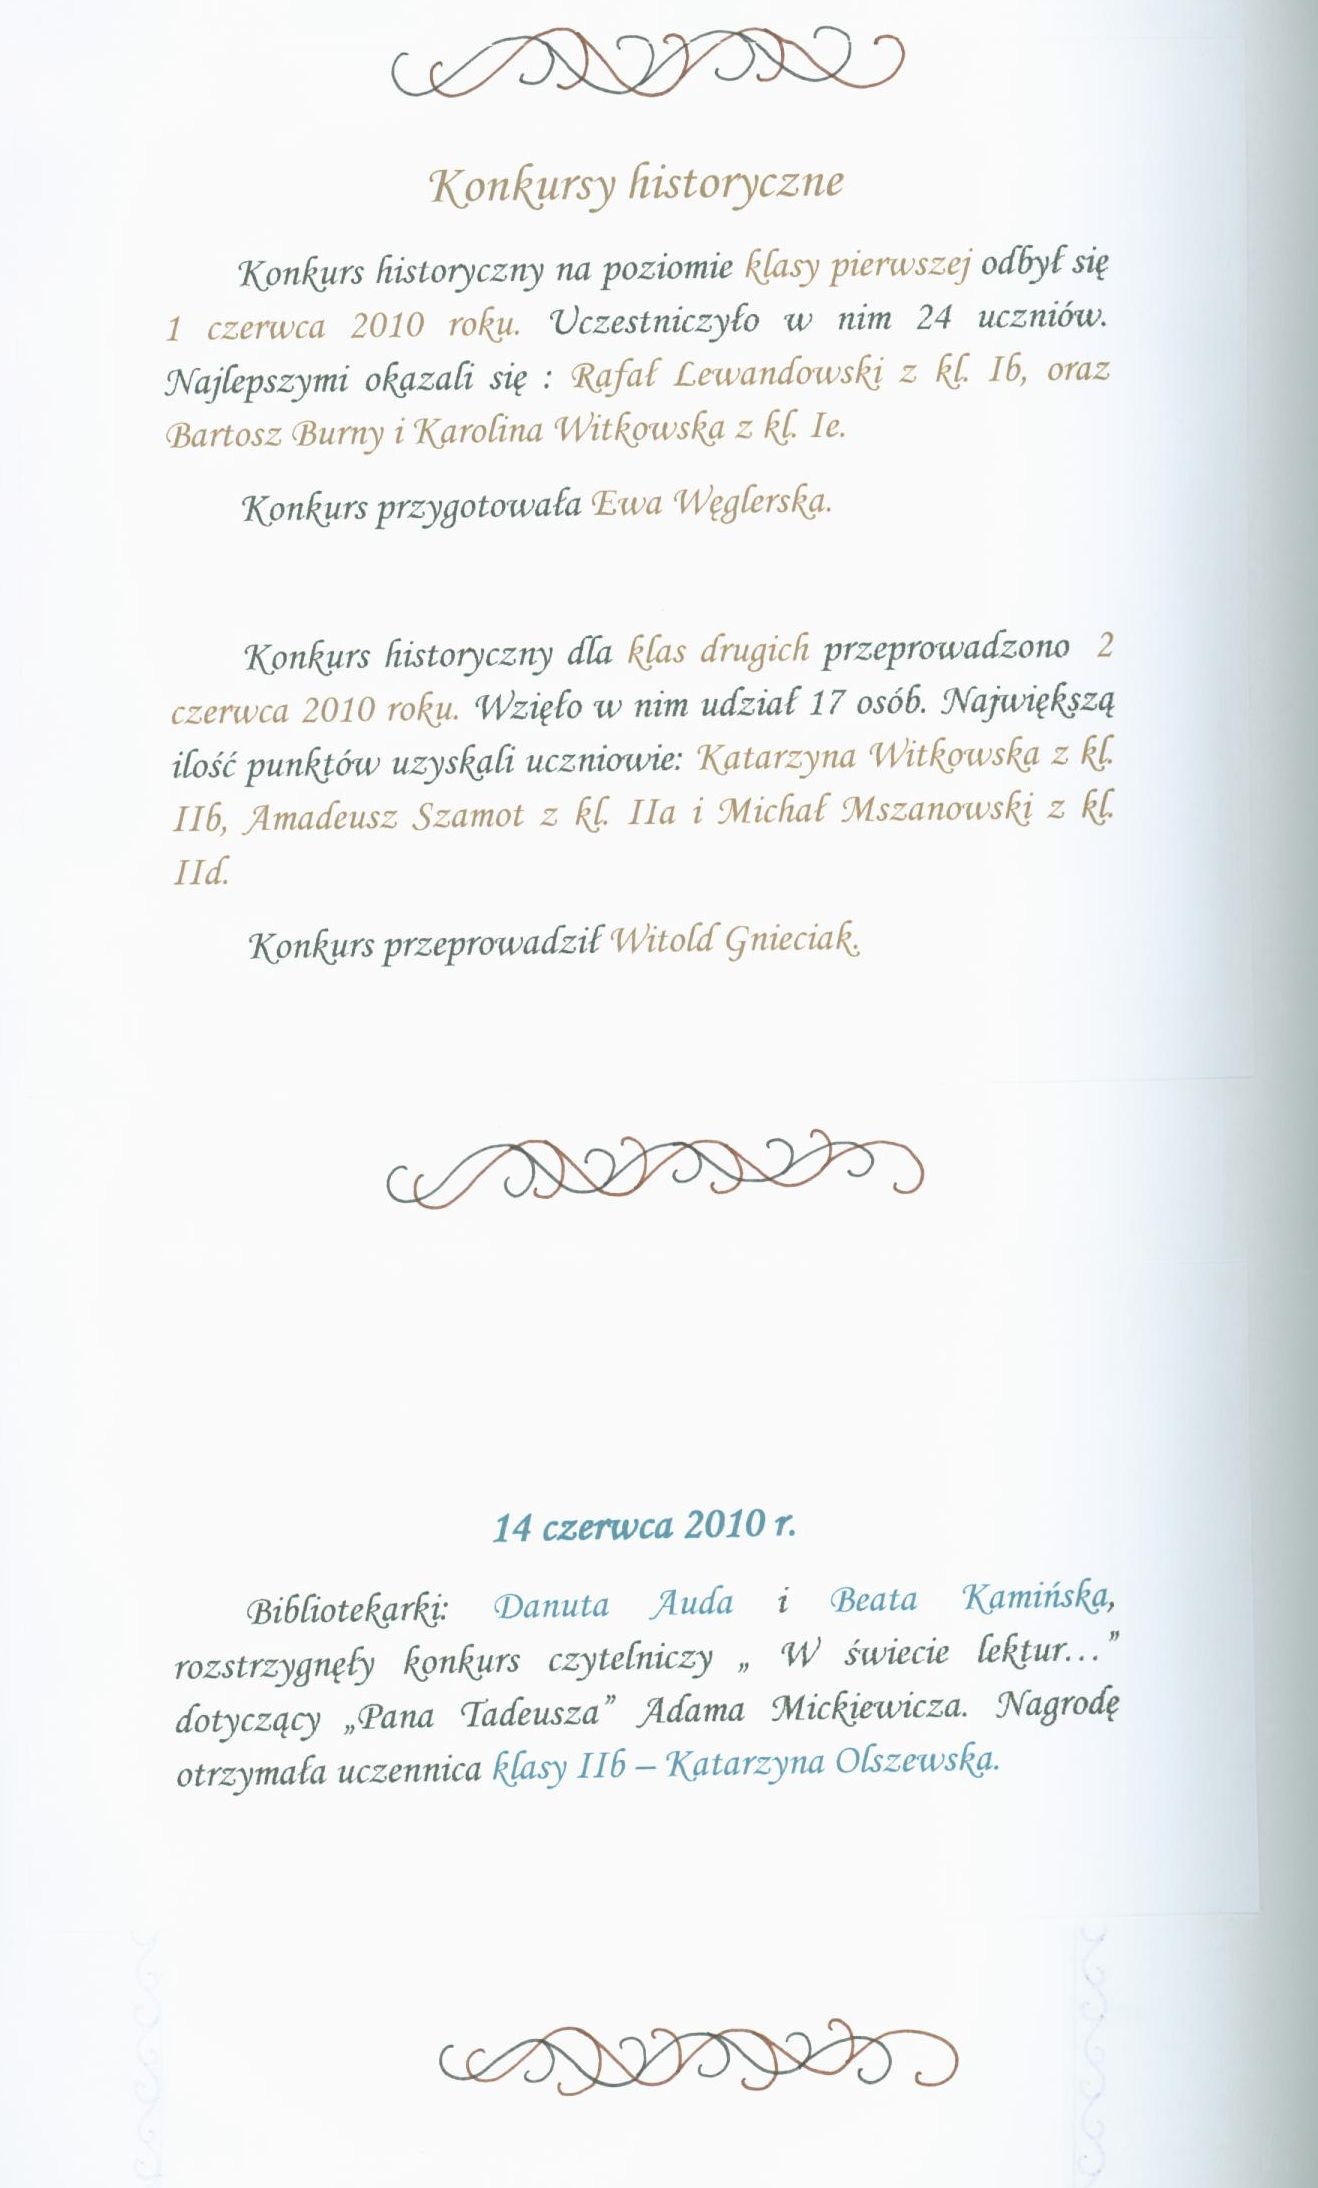 Konkursy historyczne
Konkurs historyczny na poziomie klasy pierwszej odbył się
1 czerwca 2010 roku. Uczestniczyło w nim 24 uczniów.
Najlepszymi okazali się : Rafał Lewandowski z kl. Ib, oraz
Bartosz Burny i Karolina Witkowska z kl. Ie.
Konkurs przygotowała Ewa Węglerska.
Konkurs historyczny dla klas drugich przeprowadzono 2
czerwca 2010 roku. Wzięło w nim udział 17 osób. Największą
ilość punktów uzyskali uczniowie: Katarzyna Witkowska z kl.
IIb, Amadeusz Szamot z kl. IIa i Michał Mszanowski z kl.
IId.
Konkurs przeprowadził Witold Gnieciak.
14 czerwca 2010 r.
Bibliotekarki: Danuta Auda i Beata Kamińska,
rozstrzygnęły konkurs czytelniczy „ W świecie lektur…”
dotyczący „Pana Tadeusza” Adama Mickiewicza. Nagrodę
otrzymała uczennica klasy IIb – Katarzyna Olszewska.